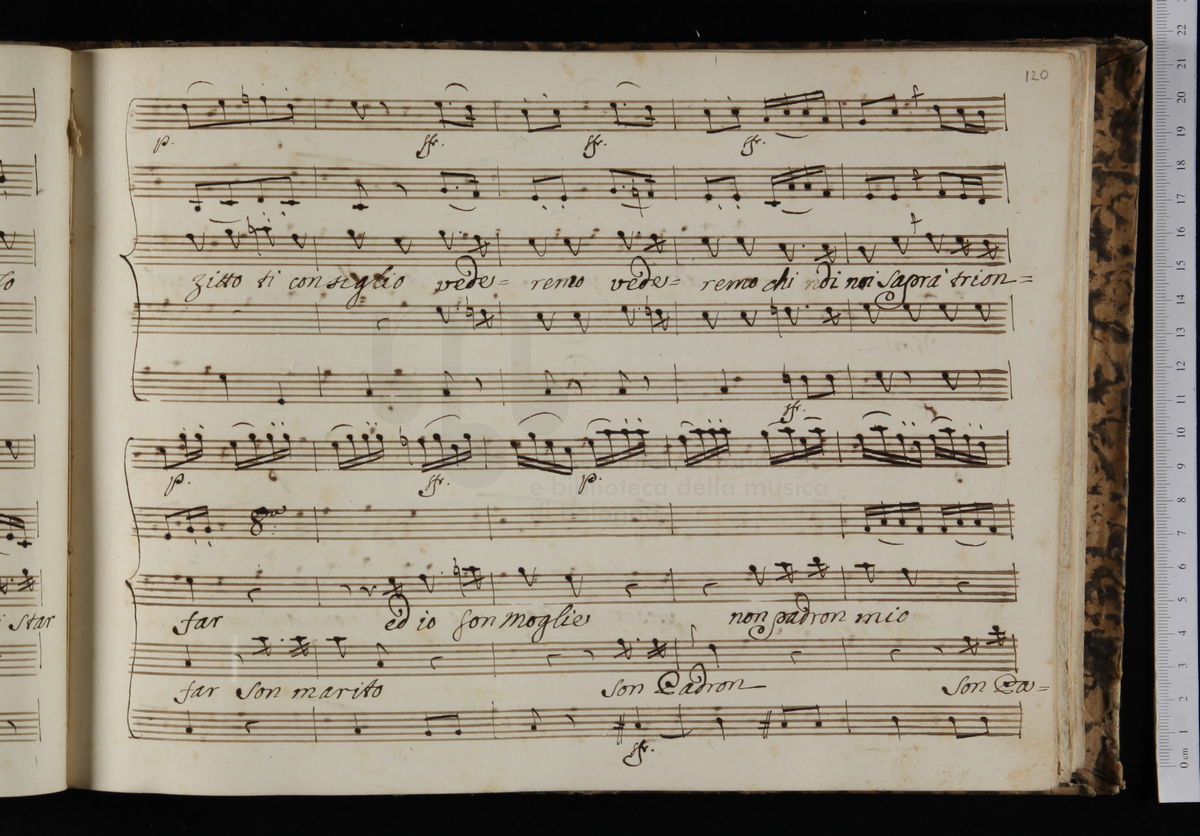 120
p. sfr. sfr. sfr.
zitto ti consiglio vede= remo vede= remo chi di noi saprà trion=
sfr.
p. sfr. p.
e biblioteca della musica
8va
i star far ed io son moglie non padron mio
far son marito son Padron son Pa=
sfr.
0 cm 1 2 3 4 5 6 7 8 9 10 11 12 13 14 15 16 17 18 19 20 21 22